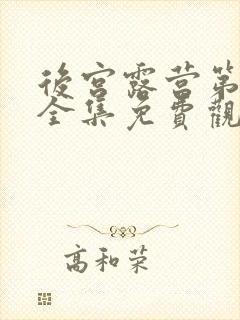 後宮露营第
全集免費觀
高和荣